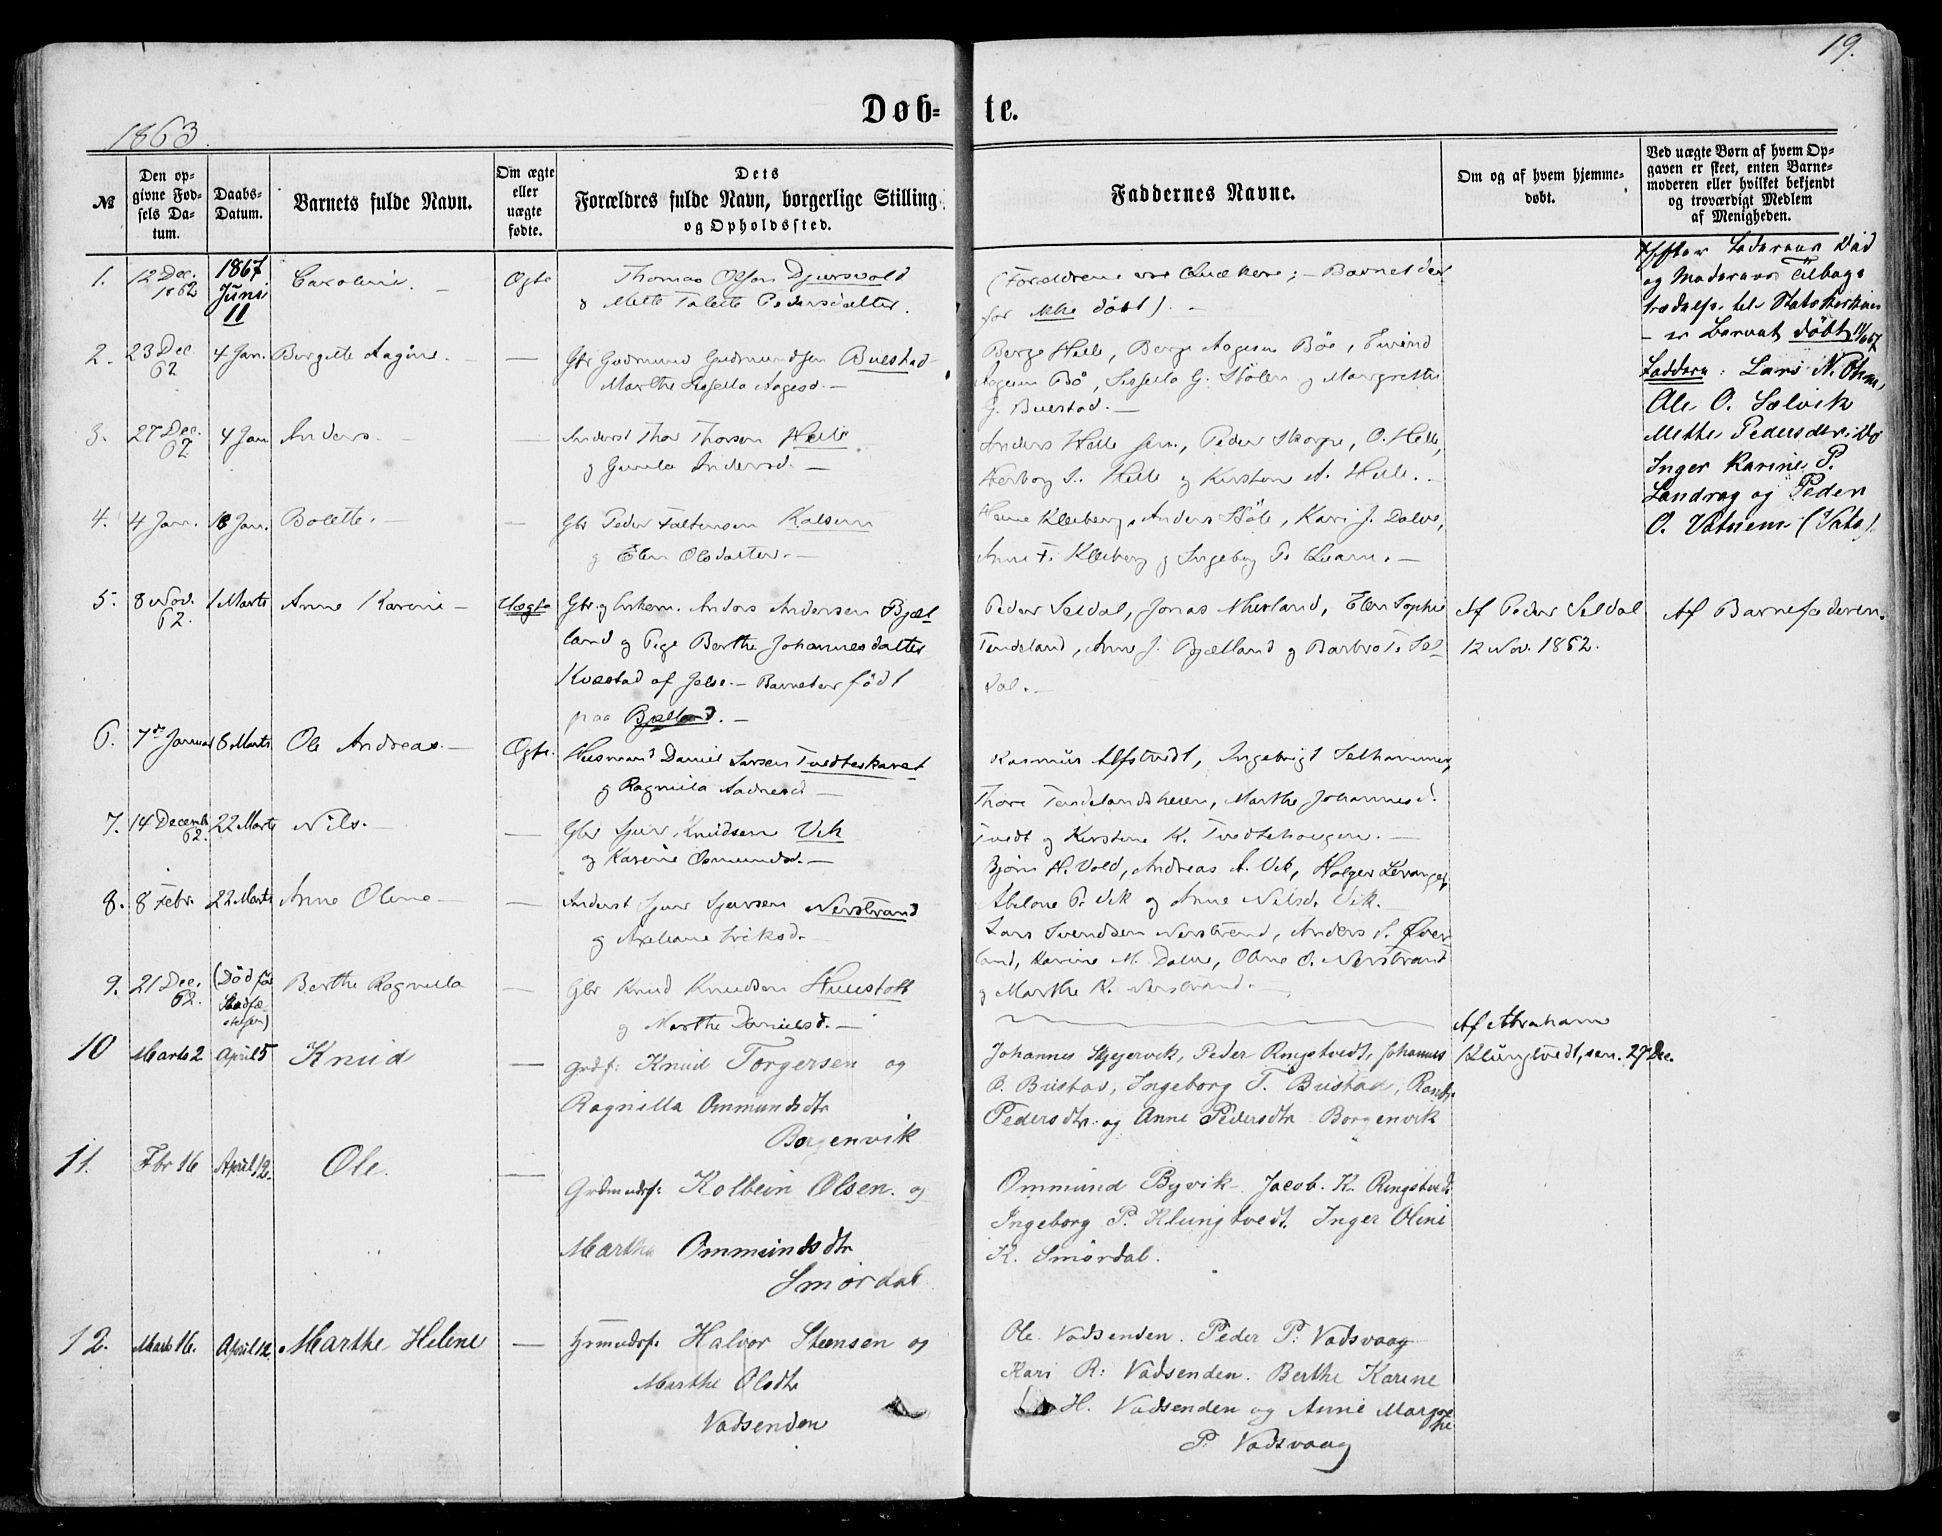 19.
Døb-
te.
1863.
№
Den op-
givne Fød-
sels Da-
tum.
Daabs-
Datum.
Barnets fulde Navn.
Om ægte
eller
uægte
fødte.
Dets
Forældres fulde Navn, borgerlige Stilling
og Opholdssted.
Faddernes Navne.
Om og af hvem hjemme-
døbt.
Ved uægte Børn af hvem Op-
gaven er skeet, enten Barne-
moderen eller hvilket bekjendt
og troværdigt Medlem
af Menigheden.
1.
12 Dec.
1862
1867
Juni
11
Caroline.
Ægte
Thomas Olsen Djursvold
& Mette Talette Pedersdatter.
(Forældrene var Qvækere; – Barnet der
for ikke døbt). –
Efter Faderens Død
og Moderens Tilbage
trædelse til Statskirken
– er Barnet døbt 11/6 67
Faddere: Lars N. Olsen,
Ole O. Sælvik
Methe Pedersdtr.
Inger Karine P.
Landrag og Peder
O. Vatsiem (Vats).
2.
23 Dec
62
4 Jan.
Borgilte Aagine.
—
Gbr Gudmund Gudmundsen Buestad
Marthe Sissella Aagesd. –
Berge Helle, Berge Aagesen Bøe, Eivind
Aagesen Bö, Sissella G. Stölen og Margrethe
G. Buestad. –
3.
27 Dec.
62
4 Jan
Anders.
—
Anderst Thor Thorsen Helle
og Gunla Andersd. –
Anders Helle sen., Peder Skorpe, O. Helle,
Herborg S. Helle og Kirsten A. Helle. –
4.
4 Jan.
18 Jan.
Bolette. –
—
Gbr Peder Faltensen Kalsem
og Elen Olsdatter. –
Kleiberg, Anders Stöle, Kari J. Dalve,
Anne T. Kleiberg og Ingeborg P. Qvam. –
5.
8 Nov.
62.
1 Marts
Anne Karine –
Uægte
Gbr. og Enkem. Anders Andersen Bjel
land og Pige Berthe Johannesdatter
Kvæstad af Jelse. – Barnet er født
paa Bjelland. –
Peder Seldal, Jonas Nerland, Elen Sophie
Tendeland, Anne J. Bjelland og Barbro T. Sel
dal. –
Af Peder Seldal
12 Nov. 1862.
Af Barnefaderen.
6.
7de Januar
8 Marts
Ole Andreas. –
Ægte.
Husmand Daniel Larsen Tvedteskaret
og Ragnilla Aadnesd –
Rasmus Alfstvedt, Ingebrigt Selhammer,
Thore Tendelandsheien, Marthe Johannesd.
Tvedt og Kirstine K. Tvedtehougen. –
7.
14 Decemb
62.
22 Marts
Nils. –
—
Gbr Sjur Knudsen Vik
og Karine Osmundsd. –
Bjørn H. Vold, Andreas A. Vik, Holger Levanger,
Abelone P. Vik og Anne Nilsd. Vik. –
8.
8 Febr.
22 Marts
Anne Oline –
—
Anderst Sjur Sjursen Nerstrand
og Axeliane Eriksd. –
Lars Svendsen Nerstrand, Anders S. Øver
land, Karine M. Dalve, Oline O. Nerstrand
og Marthe K. Nerstrand. –
9.
21 Dec.
62.
(Død før
Stadfæ
stelsen)
Berthe Ragnilla
—
Gbr Knud Knudsen Huustoft
og Marthe Danielsd. –
Af Abraham
Klungtvedt, sen. 27 Dec.
10
Marts 2
April 5
Knud
—
Grdf: Knud Torgersen og
Ragnilla Ommundsdtr
Borgenvik
Johannes Skjervik, Peder Ringstvedt, Johannes
O. Bustad, Ingeborg T. Bustad, Randi
Pedersdtr. og Anne Pedersdtr Borgenvik
11.
Fbr 16
April 12.
Ole.
—
Grdmndsf: Kolbein Olsen og
Marthe Ommundsdtr
Smørdal
Ommund Byvik. Jacob K. Ringstvedt
Ingeborg P. Klungtvedt, Inger Oline
K. Smørdal.
12.
Marts 16.
April 12
Marthe Heline
—
Grmndsf: Halvor Steensen og
Marthe Olsdtr
Vadsenden
Ole Vadsenden. Peder P: Vadsvaag
Kari R: Vadsenden. Berthe Karine
H. Vadsenden og Anne Margre
the
P: Vadsvaag